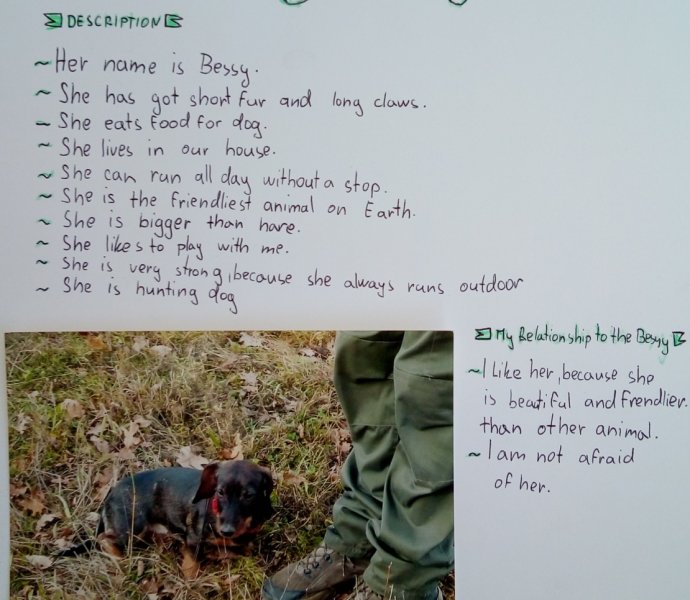 DESCRIPTION
~Her name is Bessy.
~She has got short fur and long claws.
~She eats food for dog.
~She lives in our house.
~She can run all day without a stop.
~She is the friendliest animal on Earth.
~She is bigger than hare.
~She likes to play with me.
~She is very strong, because she always runs outdoor
~She is hunting dog
My Relationship to the Bessy
~I Like her, because she
is beautiful and frendlier
than other animal.
~I am not afraid
of her.